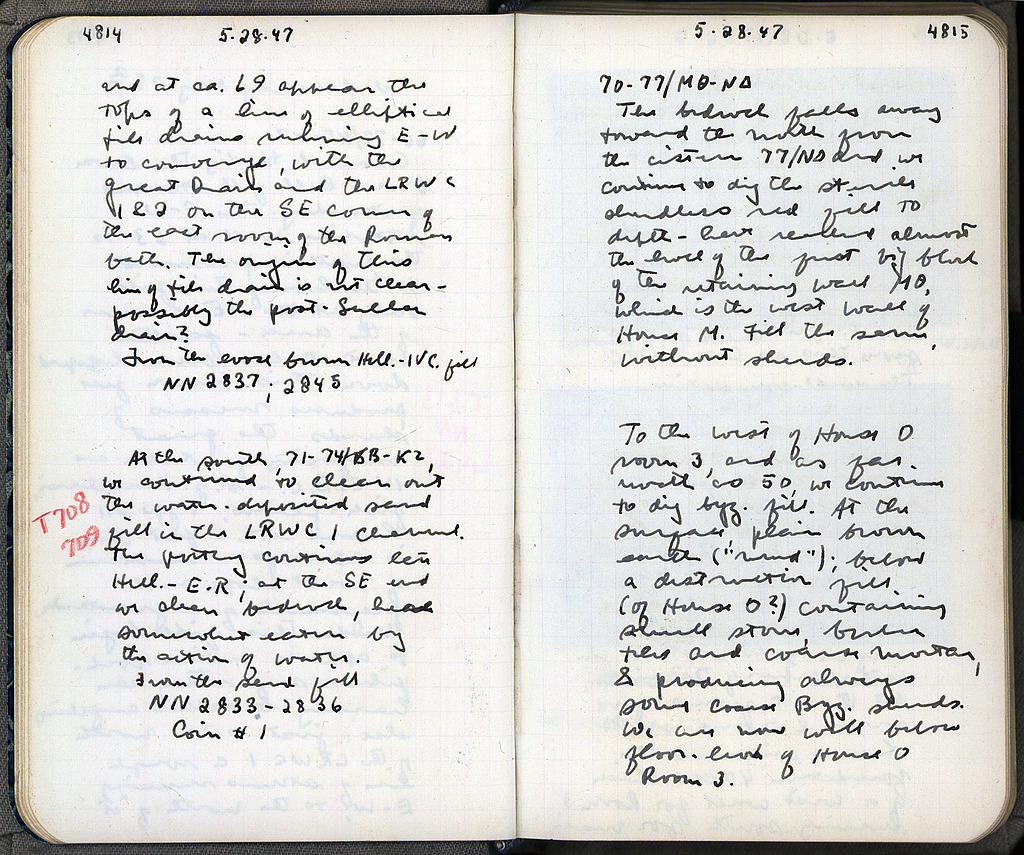 4814
5.28.47
and at ca. 69 appear the
tops of a line of elliptical
tile drains running E-W
to converge, with the
great Drain and the LRWC
1 & 2 on the SE corner of
the east room of the Roman
bath. The origin of this
line of tile drain is not clear -
possibly the post-Sullan
drain?
From the loose brown Hell.-IVC. fill
NN 2837; 2845
At the south, 71-74/ΒΒ-ΚΖ,
we continued to clean out
the water-deposited sand
fill in the LRWC 1 channel.
The pottery continues late
Hell.- E.R; at the SE end
we clean bedrock, here
somewhat eaten by
the action of water.
From the sand fill
NN 2833-2836
Coin #1
T 708
709
5.28.47
4815
70-77/ΜΘ-ΝΔ
The bedrock falls away
toward the north from
the cistern 77/ΝΔ and we
continue to dig the sterile
sherdless red fill to
depth - have reached almost
the level of the first big block
of the retaining wall /ΜΘ,
which is the west wall of
House M. Fill the same,
without sherds.
To the west of House O
room 3, and as far
north as 50, we continue
to dig byz. fill. At the
surface, plain brown
earth ("mud"); below
a destruction fill
(of House O?) containing
small stones, broken
tiles and coarse mortar,
& producing always
some coarse Byz. sherds.
We are now well below
floor-level of House O
Room 3.